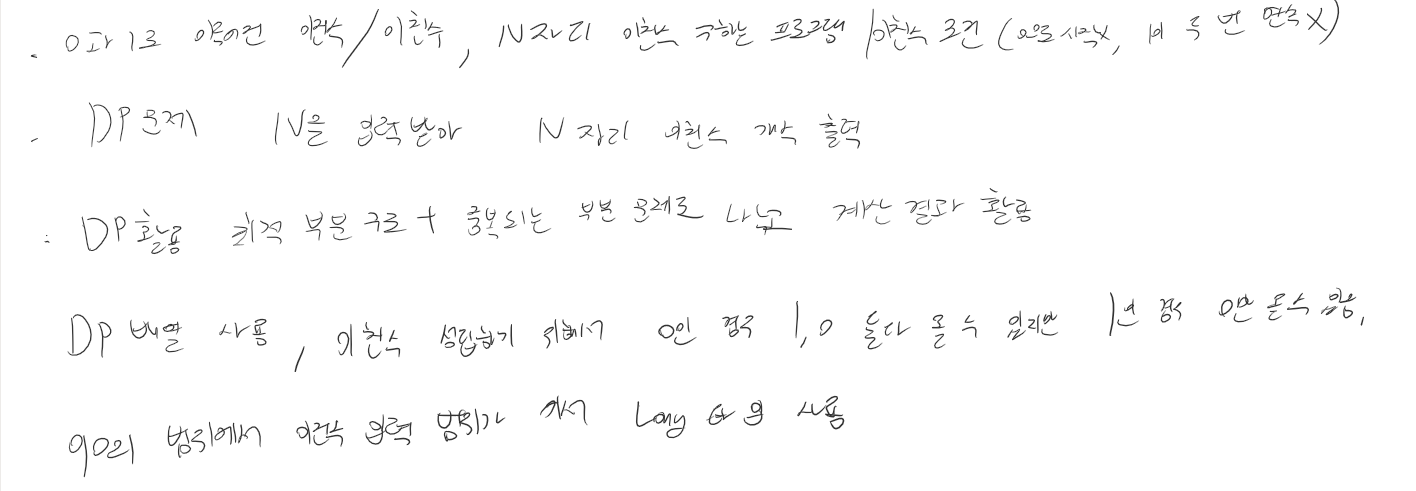 . 0과 1로 이루어진 이진수 / 이친수, N자리 이친수 구하는 프로그램 / 이친수 조건 (0으로 시작X, 1이 두 번 연속X)
. DP 문제 N을 입력 받아 N 자리 이친수 개수 출력
: DP 활용 최적 부분 구조 + 중복되는 부분 문제로 나누고 계산 결과 활용
DP 배열 사용, 이친수 성립하기 위해서 0인 경우 1, 0 둘다 올 수 있지만 1인 경우 0만 올수 있음,
90의 범위에서 이친수 입력 범위가 커서 Long 사용